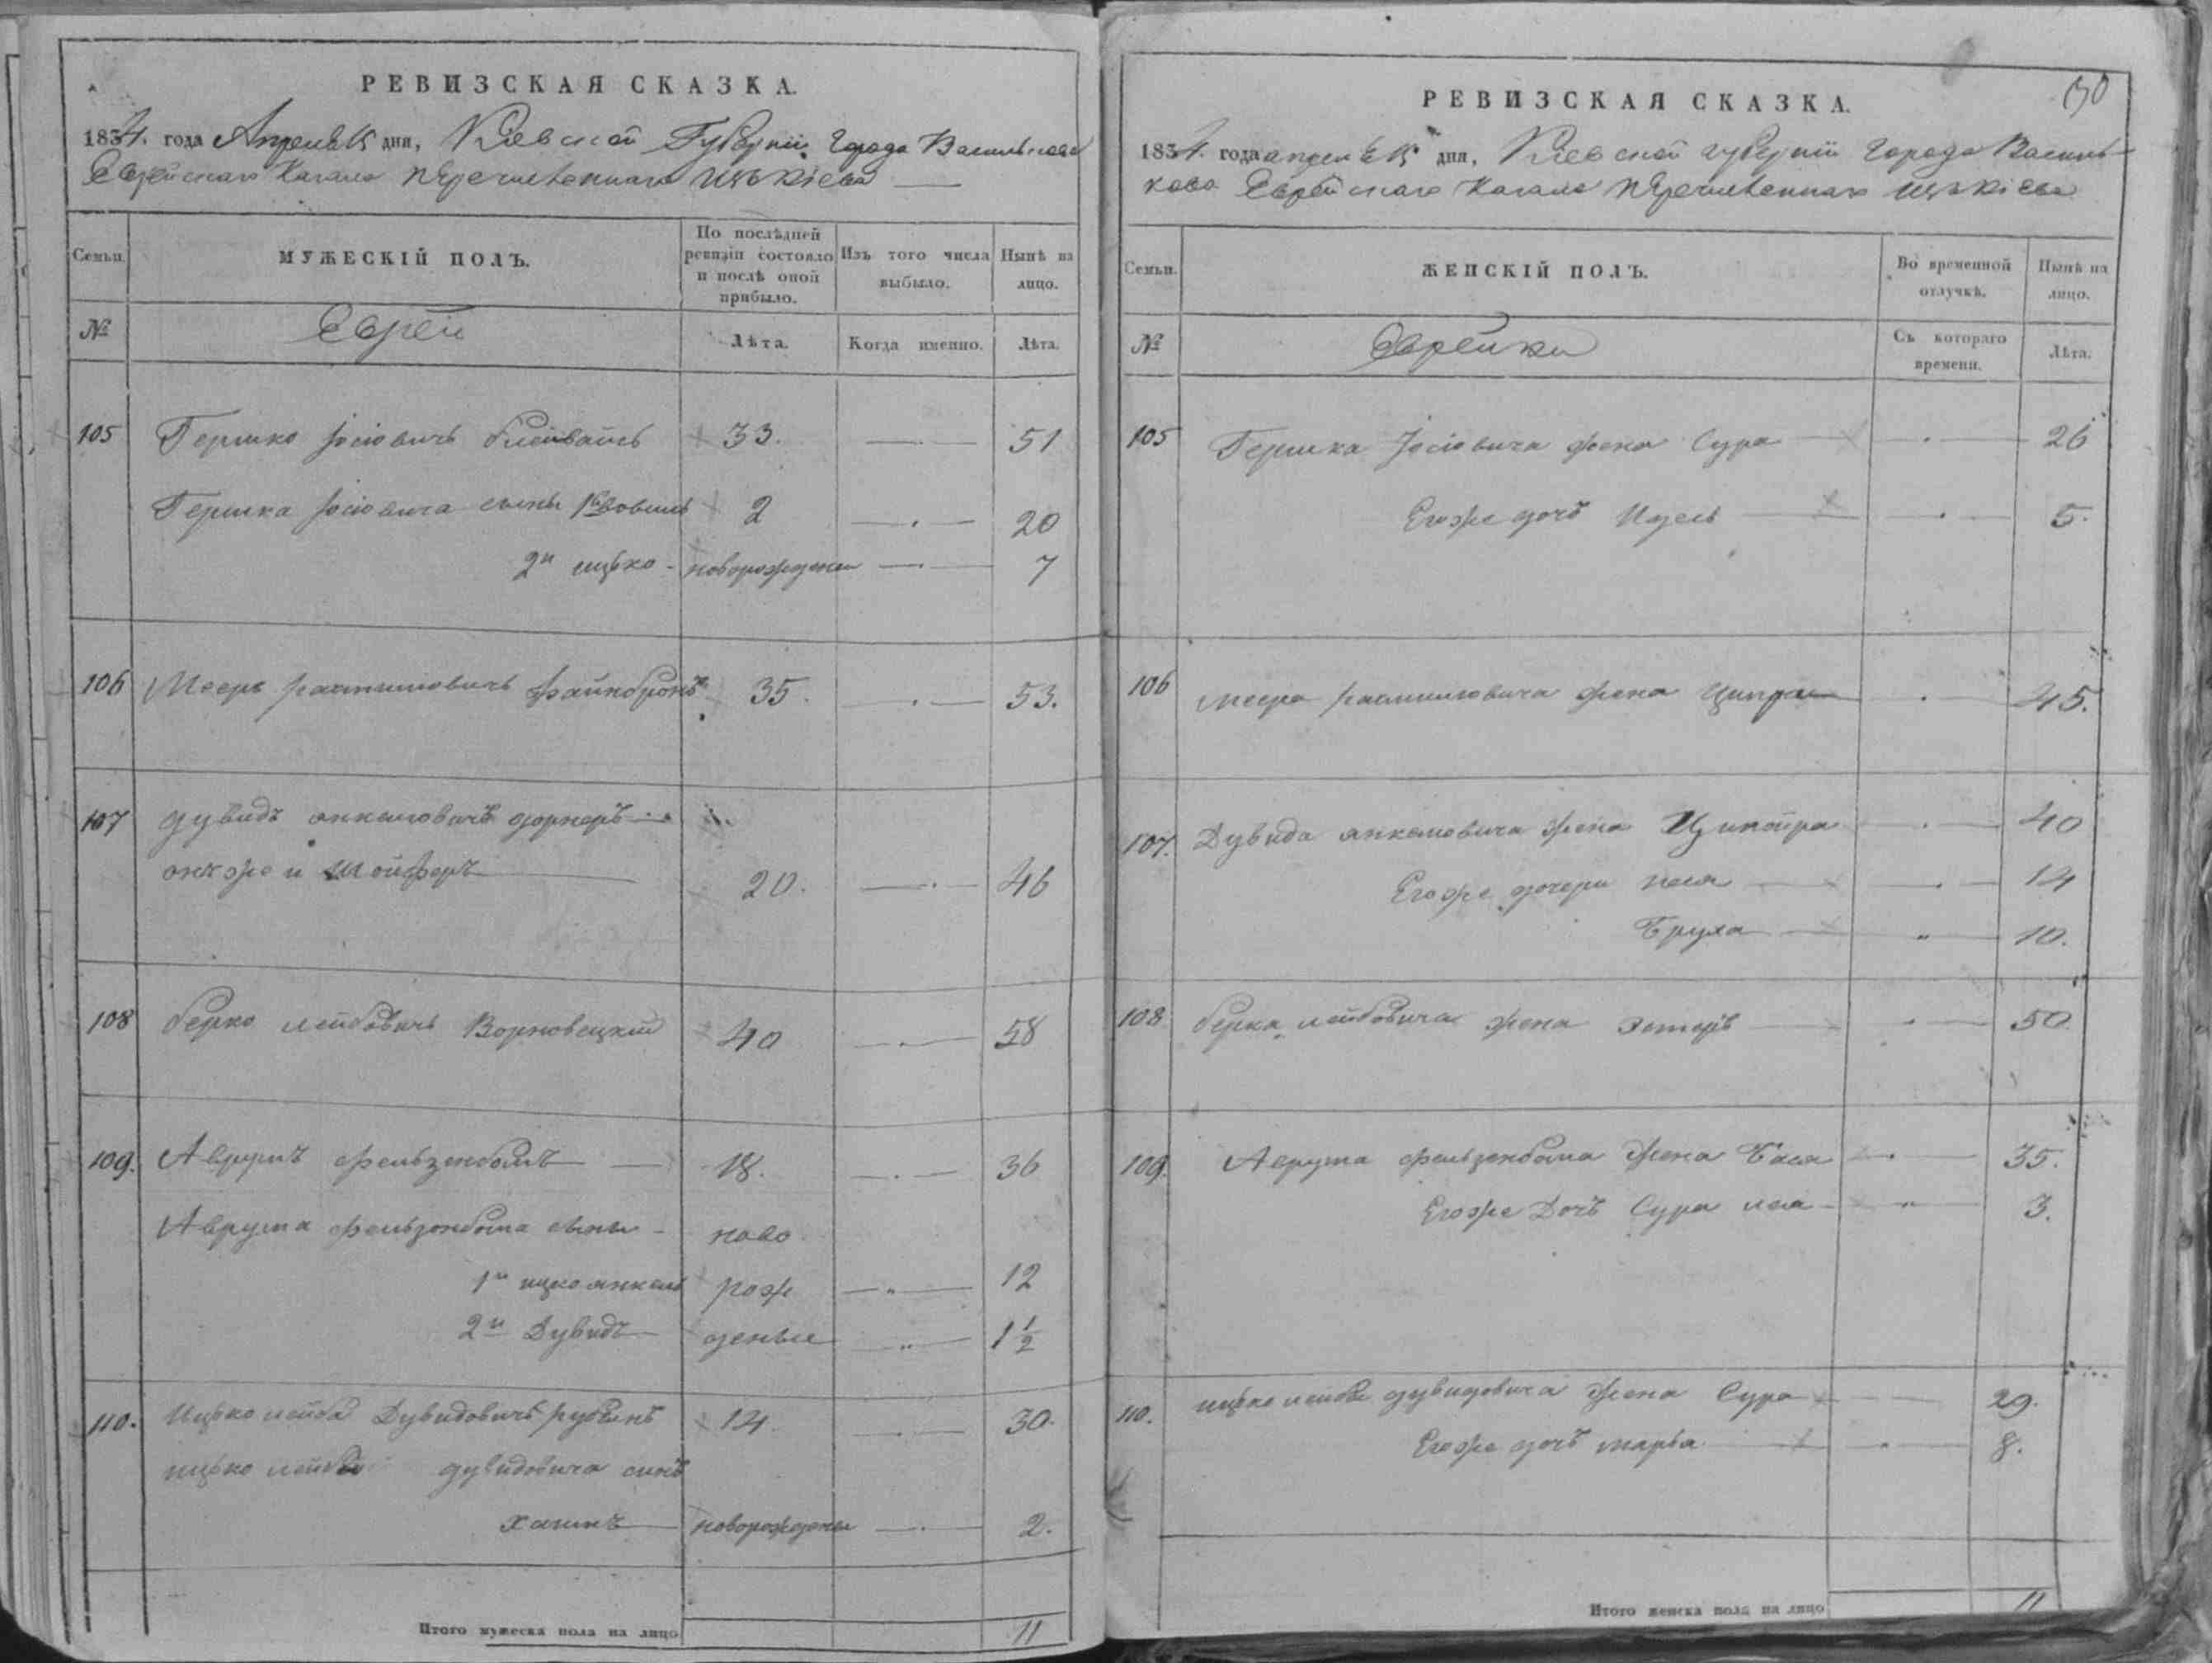 РЕВИЗСКАЯ СКАЗКА.
1834. года Апреля 15 дня, Кіевской Губерніи Города Василькова
Еврейскаго Кагала перечисленнаго изъ Кіева
Семьи.
МУЖЕСКІЙ ПОЛЪ.
По послѣдней ревизіи состояло и послѣ оной прибыло.
Изъ того числа выбыло.
Нынѣ на лицо.
№
Евреи
Лѣта.
Когда именно.
Лѣта.
105 Гершко Іосіовичъ 33. 51
Гершка Іосіовича сыны 1й 2 20
2й ицько новорожденъ 7
106 Мееръ файнбронъ 35. 53.
107 дувидъ янкелювичъ
онъ же и Шойферъ 20. 46
108 берко лейбовичъ Ворновецкій 40 58
109. Аврумъ фельзенбомъ 18. 36
Аврума фельзенбома сыны ново
1й ицко янкель рож 12
2й Дувидъ деные 1 1/2
110. Ицько лейба Дувидовичъ рубинъ 14 30.
ицько лейбы дувидовича сынъ
хаимъ новорожденъ 2.
Итого мужеска пола на лицо 11
РЕВИЗСКАЯ СКАЗКА.
1834. года апреля 15 дня, Кіевской губерніи Города Василь-
кова Еврейскаго Кагала перечисленнаго изъ Кіева
Семьи.
ЖЕНСКІЙ ПОЛЪ.
Во временной отлучкѣ.
Нынѣ на лицо.
№
Еврейки
Съ котораго времени.
Лѣта.
105 Гершка Іосіовича жена Сура 26
Егоже дочь 5.
106 меера жена Ципра 45.
107. Дувида янкелювича жена Ципойра 40
Егоже дочери 14
Бруха 10.
108 берка лейбовича жена Эстеръ 50
109. Аврума фельзенбома жена Бася 35.
Егоже Дочь Сура лея 3.
110. ицько лейбы дувидовича жена Сура 29.
Егоже дочь марья 8.
Итого женска пола на лицо 11